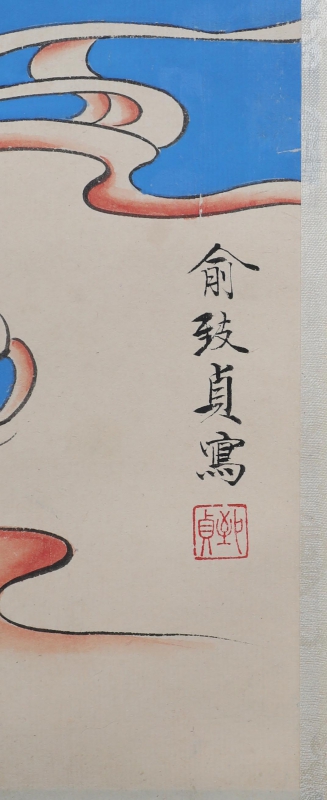 俞致貞寫
致貞